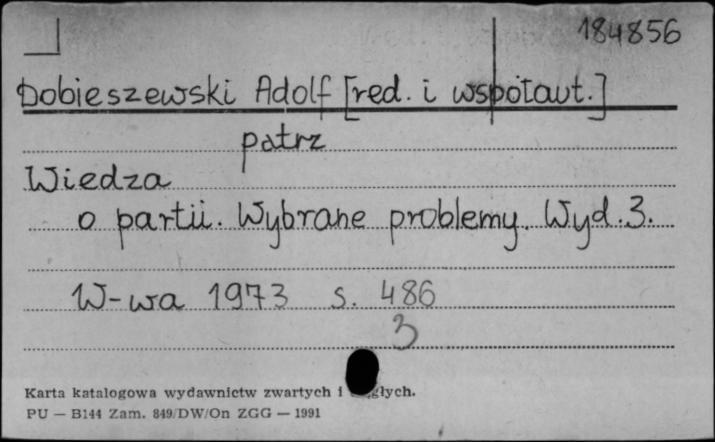 184856
Dobieszewski Adolf [red. i współaut.]
patrz
Wiedza
o partii. Wybrane problemy. Wyd. 3.
W-wa 1973 s. 486
3
Karta katalogowa wydawnictw zwartych i
PU — B144 Zam. 849/DW/On ZGG — 1991